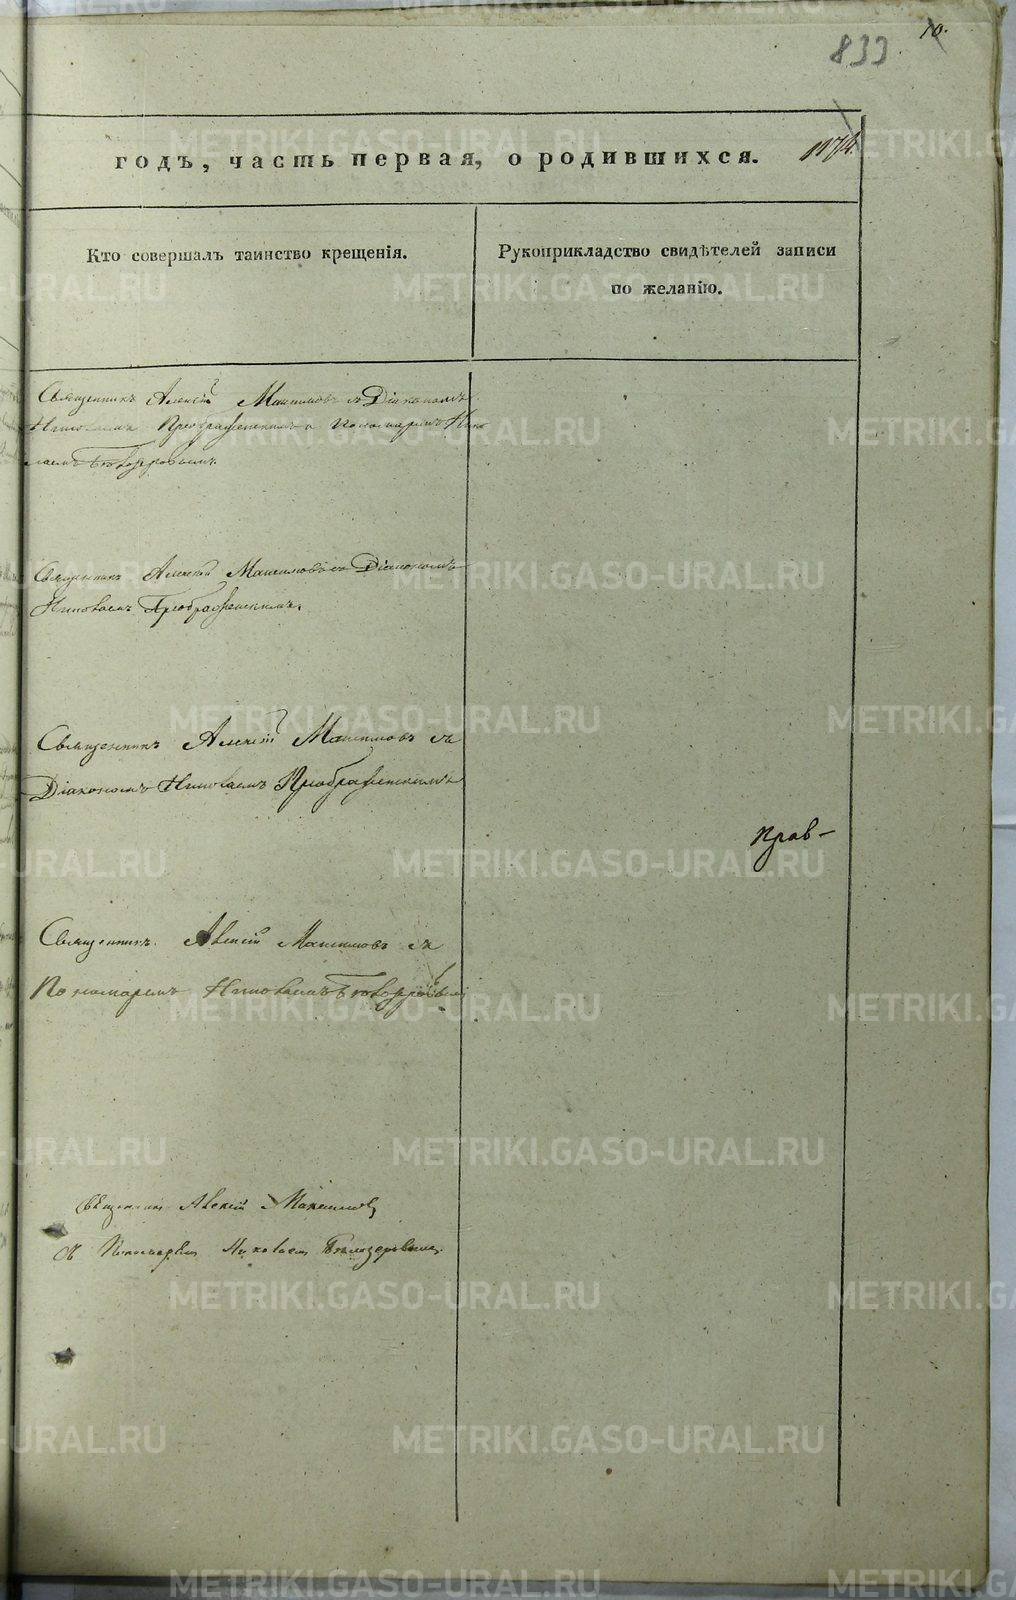 10.
833
годъ, часть первая, о родившихся.
1174.
Кто совершалъ таинство крещенія.
Рукоприкладство свидѣтелей записи
по желанію.
Священникъ Алексій Максимовъ съ Діакономъ
Николаемъ Преображенскимъ и Пономаремъ Нико
лаемъ Бѣлозеровымъ.
Священникъ Алексій Максимовъ съ Діакономъ
Николаемъ Преображенскимъ.
Священникъ Алексій Максимовъ съ
Діакономъ Николаемъ Преображенскимъ
Прав-
Священникъ Алексій Максимовъ съ
Пономаремъ Николаемъ Бѣлозеровымъ
Священникъ Алексій Максимовъ
съ Пономаремъ Николаемъ Бѣлозеровымъ
METRIKI.GASO-URAL.RU